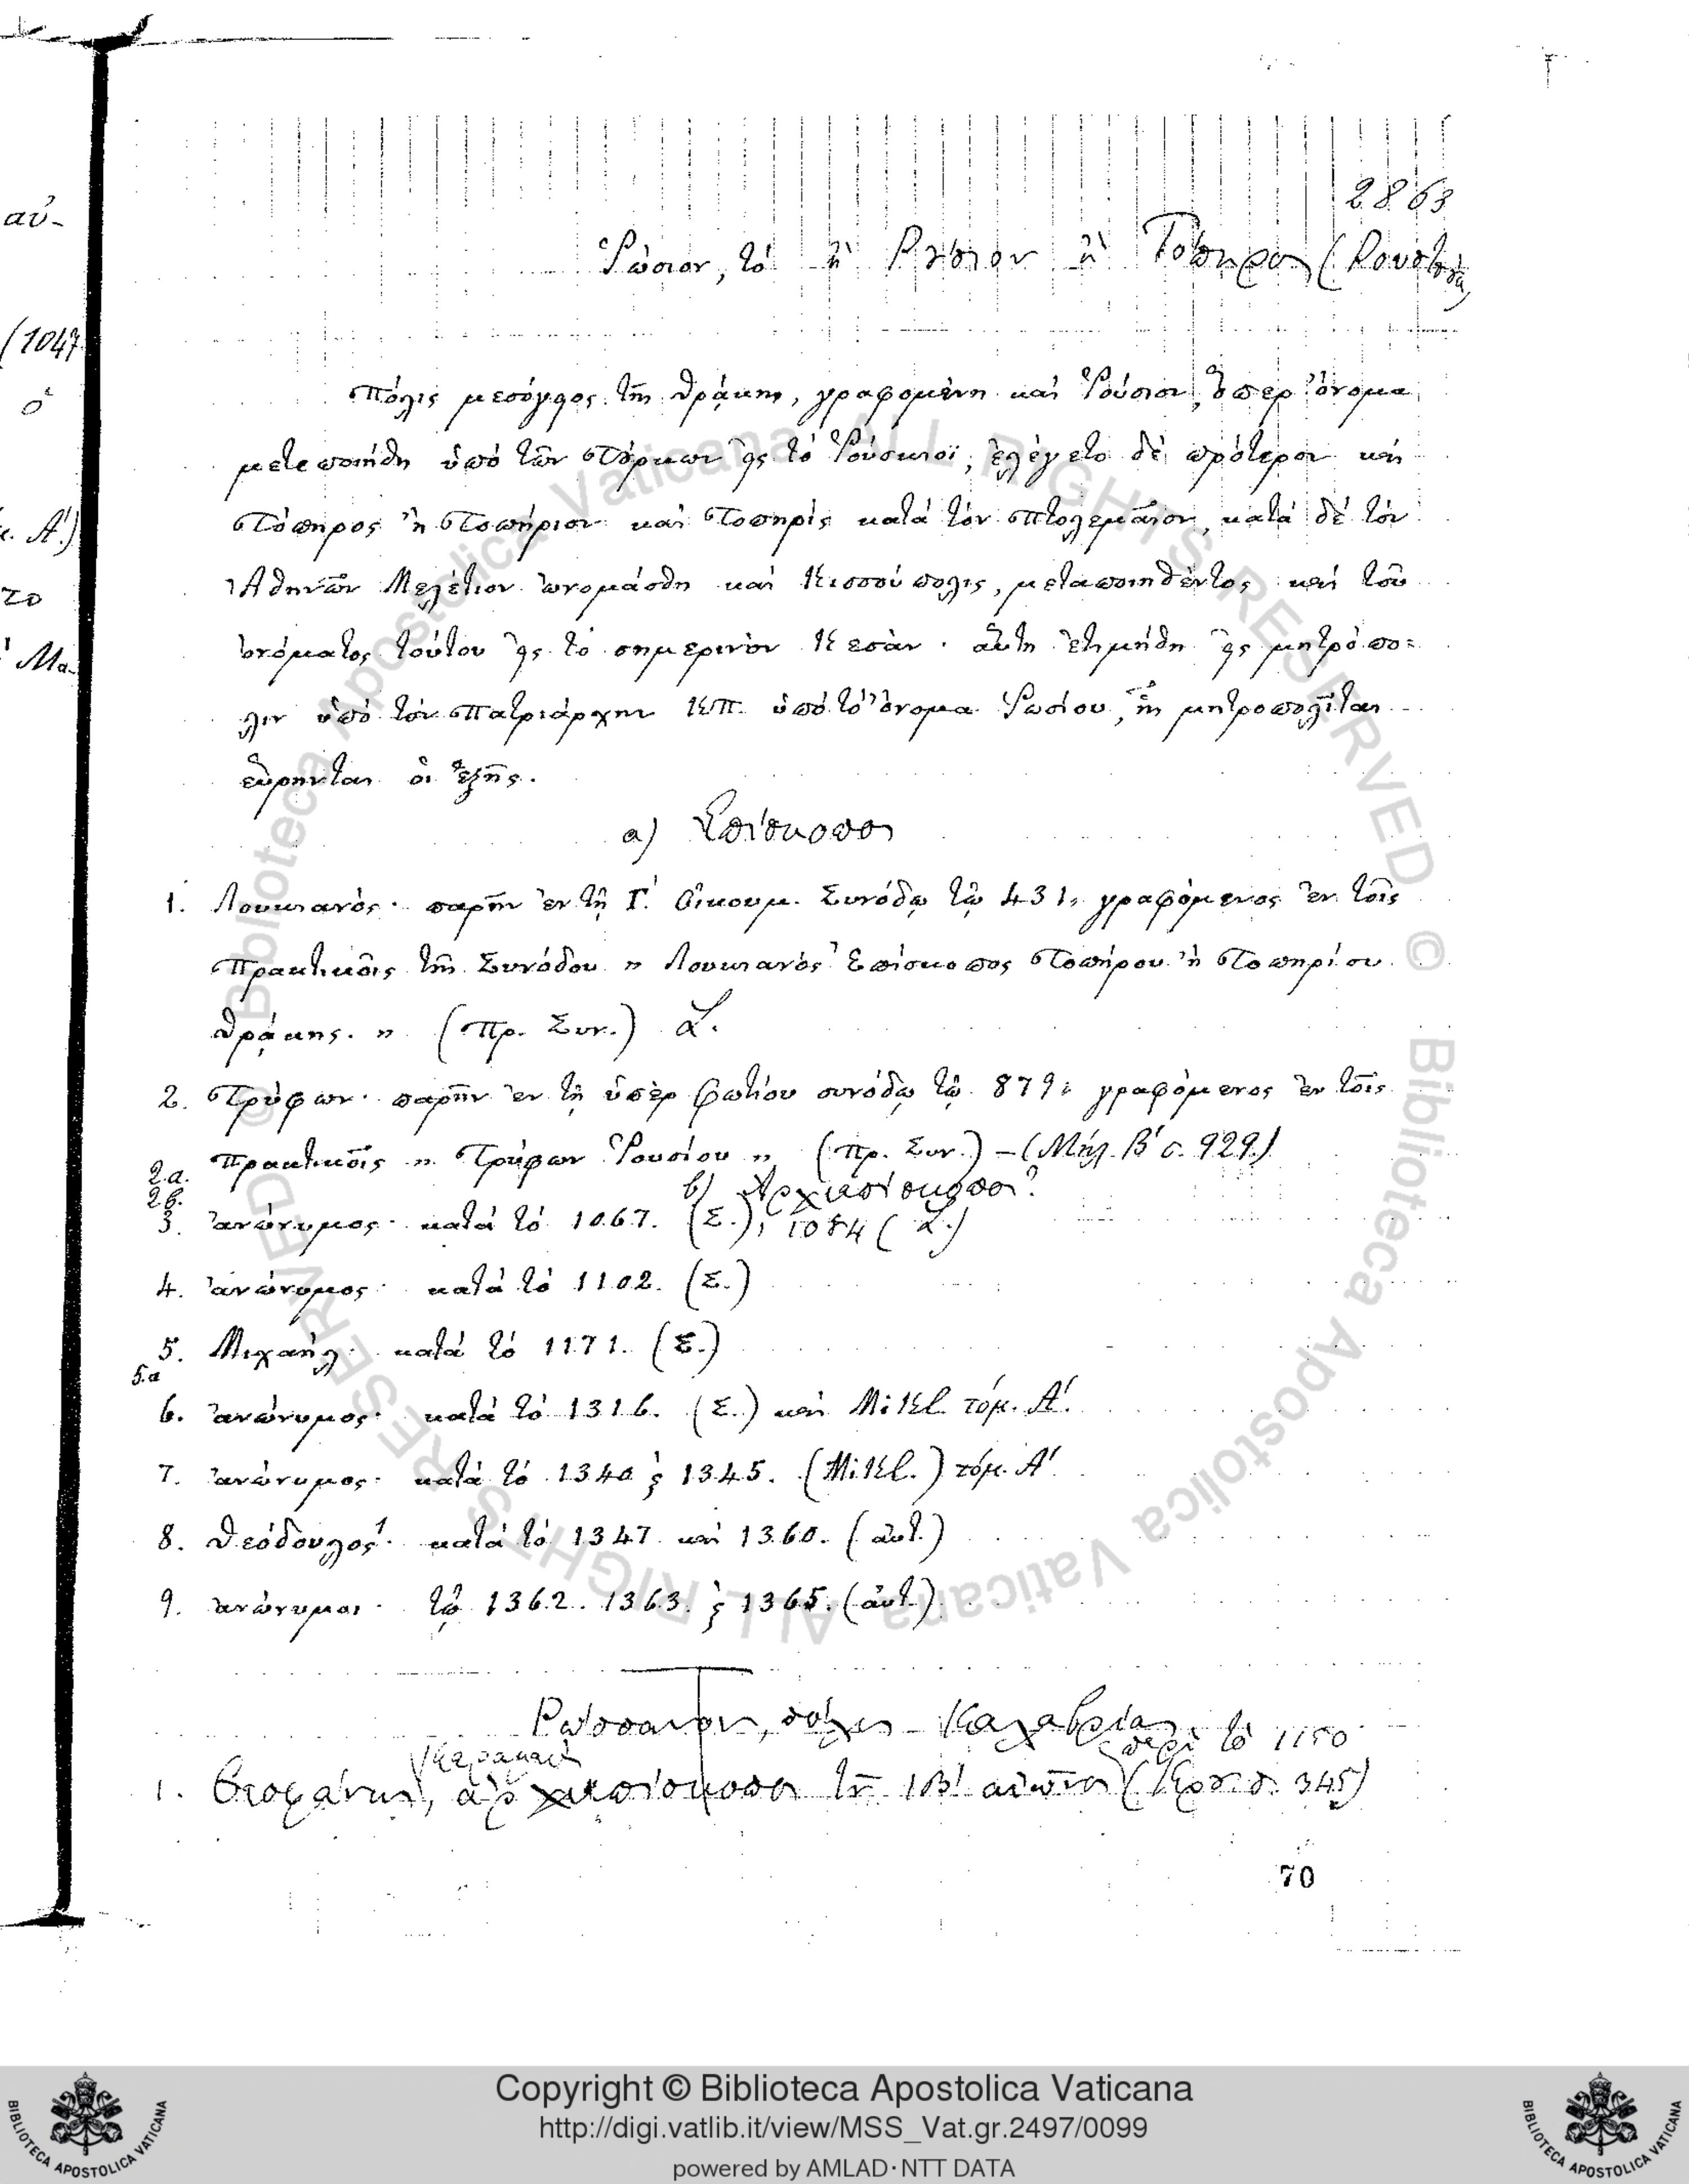 αὐ-
(1047
ὁ
κ. Α΄.)
το
Μα-
2863
Ῥώσιον, τό ἢ Ρύσιον ἢ Τόπηρον (Ρουσ
Πόλις μεσόγειος τῆς Θρᾴκης, γραφομένη καί Ῥούσιον, ὅπερ ὄνομα
μετεποιήθη ὑπό τῶν Τούρκων εἰς τό Ῥούσκιοϊ, ἐλέγετο δέ πρότερον καί
Τόπηρος ἢ Τοπήριον καί Τοπηρίς κατά τόν Πτολεμαῖον, κατά δέ τόν
Ἀθηνῶν Μελέτιον ὠνομάσθη καί Κισσούπολις, μεταποιηθέντος καί τοῦ
ὀνόματος τούτου εἰς τό σημερινόν Κεσάν· αὕτη ἐτιμήθη εἰς μητρόπο=
λιν ὑπό τόν Πατριάρχην ΚΠ. ὑπό τό ὄνομα Ῥωσίου, ἧς μητροπολῖται
εὕρηνται οἱ ἑξῆς.
α) Ἐπίσκοποι
1. Λουκιανός· παρῆν ἐν τῇ Γ΄. Οἰκουμ. Συνόδῳ τῷ 431, γραφόμενος ἐν τοῖς
Πρακτικοῖς τῆς Συνόδου „ Λουκιανός Ἐπίσκοπος Τοπήρου ἢ Τοπηρίου
Θρᾴκης. „ (Πρ. Συν.) L.
2. Τρύφων· παρῆν ἐν τῇ ὑπέρ Φωτίου συνόδῳ τῷ 879, γραφόμενος ἐν τοῖς
Πρακτικοῖς „ Τρύφων Ῥουσίου „ (Πρ. Συν.) – (Μήλ. Β΄ σ. 929.)
2.α.
2β. β) Ἀρχιεπίσκοποι?
3. ἀνώνυμος· κατά τό 1067. (Σ.), 1084 (L.)
4. ἀνώνυμος· κατά τό 1102. (Σ.)
5. Μιχαήλ· κατά τό 1171. (Σ.)
5.α
6. ἀνώνυμος· κατά τό 1316. (Σ.) καί Mikl. τόμ. Α΄.
7. ἀνώνυμος· κατά τό 1340 ϗ 1345. (Mikl.) τόμ. Α΄
8. Θεόδουλος¹· κατά τό 1347 καί 1360. (αὐτ.)
9. ἀνώνυμοι· τῷ 1362. 1363. ϗ 1365. (αὐτ.)
Ρώσσανον, πόλις Καλαβρίας
περί τό 1150
Κεραμεύς
1. Θεοφάνης, ἀρχιεπίσκοπος τῆς ΙΒ΄ αἰῶνος ( σ. 345)
70
Copyright © Biblioteca Apostolica Vaticana
http://digi.vatlib.it/view/MSS_Vat.gr.2497/0099
powered by AMLAD·NTT DATA
BIBLIOTECA APOSTOLICA VATICANA
BIBLIOTECA APOSTOLICA VATICANA
© Biblioteca Apostolica Vaticana ALL RIGHTS RESERVED © Biblioteca Apostolica Vaticana ALL RIGHTS RESERVED